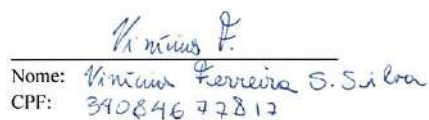 Vinícius F.
Nome: Vinícius Ferreira S. Silva
CPF: 34084677817